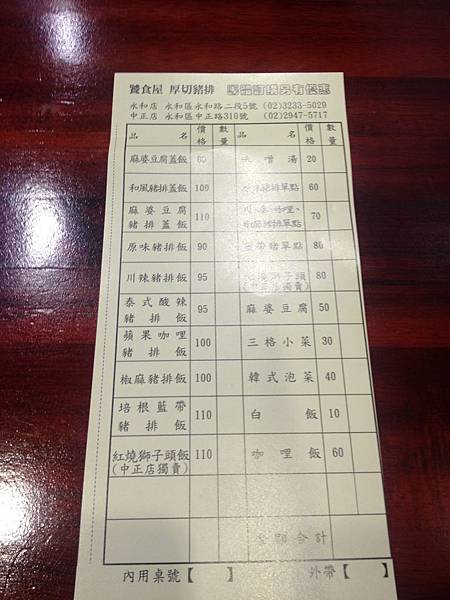 饕食屋 厚切豬排
永和店 永和區永和路二段5號 (02)3233-5029
中正店 永和區中正路310號 (02)2947-5717
品 名 價格 數量 品 名 價格 數量
麻婆豆腐蓋飯 80 味噌湯 20
和風豬排蓋飯 100 豬排單點 60
麻婆豆腐 豬排蓋飯 110 豬排單點 70
原味豬排飯 90 豬單點 80
川辣豬排飯 95 紅燒獅子頭 (中正店獨賣) 80
泰式酸辣 豬排飯 95 麻婆豆腐 50
蘋果咖哩 豬排飯 100 三格小菜 30
椒麻豬排飯 100 韓式泡菜 40
培根藍帶 豬排飯 110 白飯 10
紅燒獅子頭飯 (中正店獨賣) 110 咖哩飯 60
金額合計
內用桌號【 】 外帶【 】